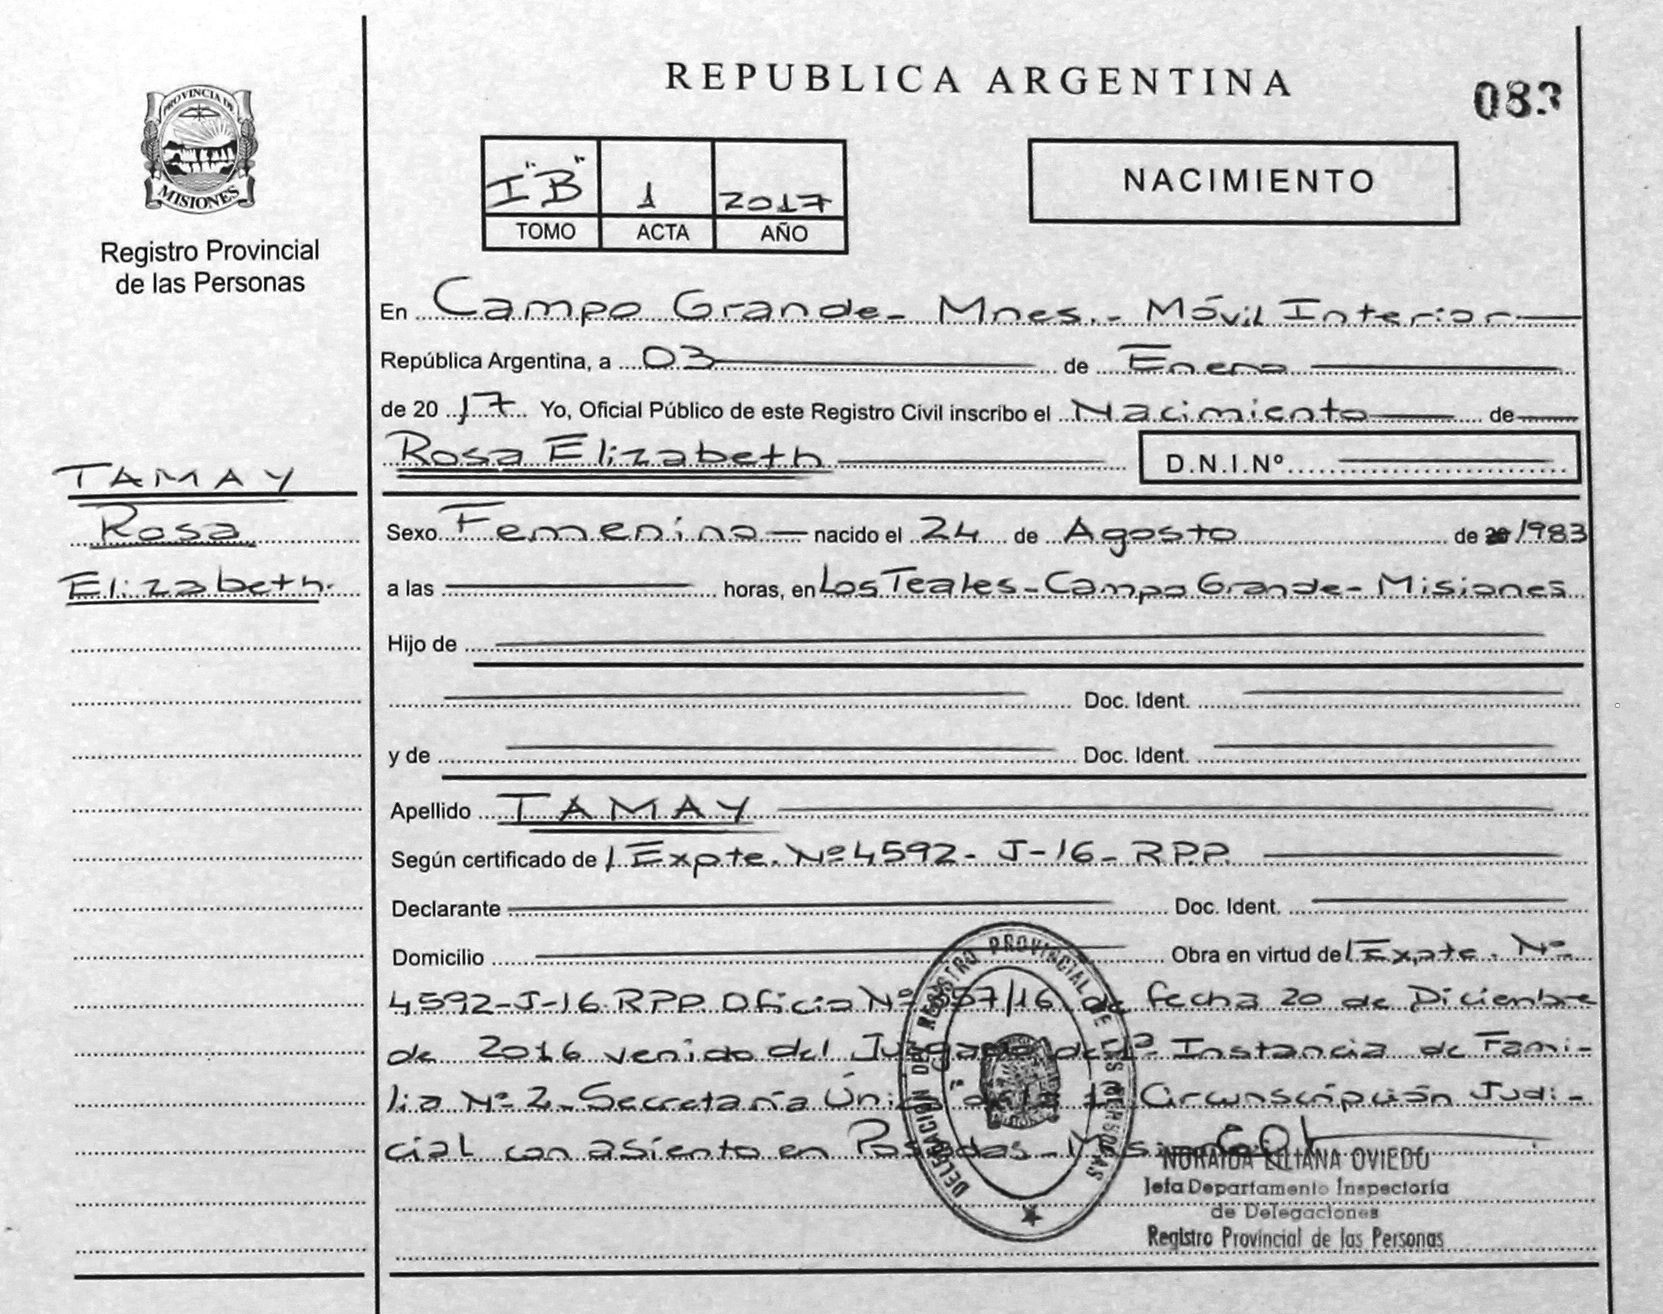 PROVINCIA DE
MISIONES
Registro Provincial
de las Personas
TAMAY
Rosa
Elizabeth.
REPUBLICA ARGENTINA
083
I "B" 1 2017
TOMO ACTA AÑO
NACIMIENTO
En Campo Grande - Mnes. - Móvil Interior
República Argentina, a 03 de Enero
de 2017 Yo, Oficial Público de este Registro Civil inscribo el Nacimiento de
Rosa Elizabeth D.N.I.Nº
Sexo Femenino nacido el 24 de Agosto de 1983
a las horas, en Los Teales - Campo Grande - Misiones
Hijo de
Doc. Ident.
y de Doc. Ident.
Apellido TAMAY
Según certificado de / Expte. Nº 4592 - J - 16 - R.P.P.
Declarante Doc. Ident.
Domicilio Obra en virtud de / Expte. Nº
4592-J-16. R.P.P. Oficio Nº 57/16 de fecha 20 de Diciembre
de 2016 venido del Juzgado de 1ª Instancia de Fami-
lia Nº 2 - Secretaría Única de la 1ª Circunscripción Judi-
cial con asiento en Posadas - Misiones
DELEGACION DEL REGISTRO PROVINCIAL DE LAS PERSONAS
NORAIDA LILIANA OVIEDO
Jefa Departamento Inspectoría
de Delegaciones
Registro Provincial de las Personas